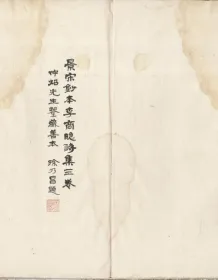 景宋鈔本李商隱詩集三卷
坤裕先生鑒藏善本 徐乃昌題